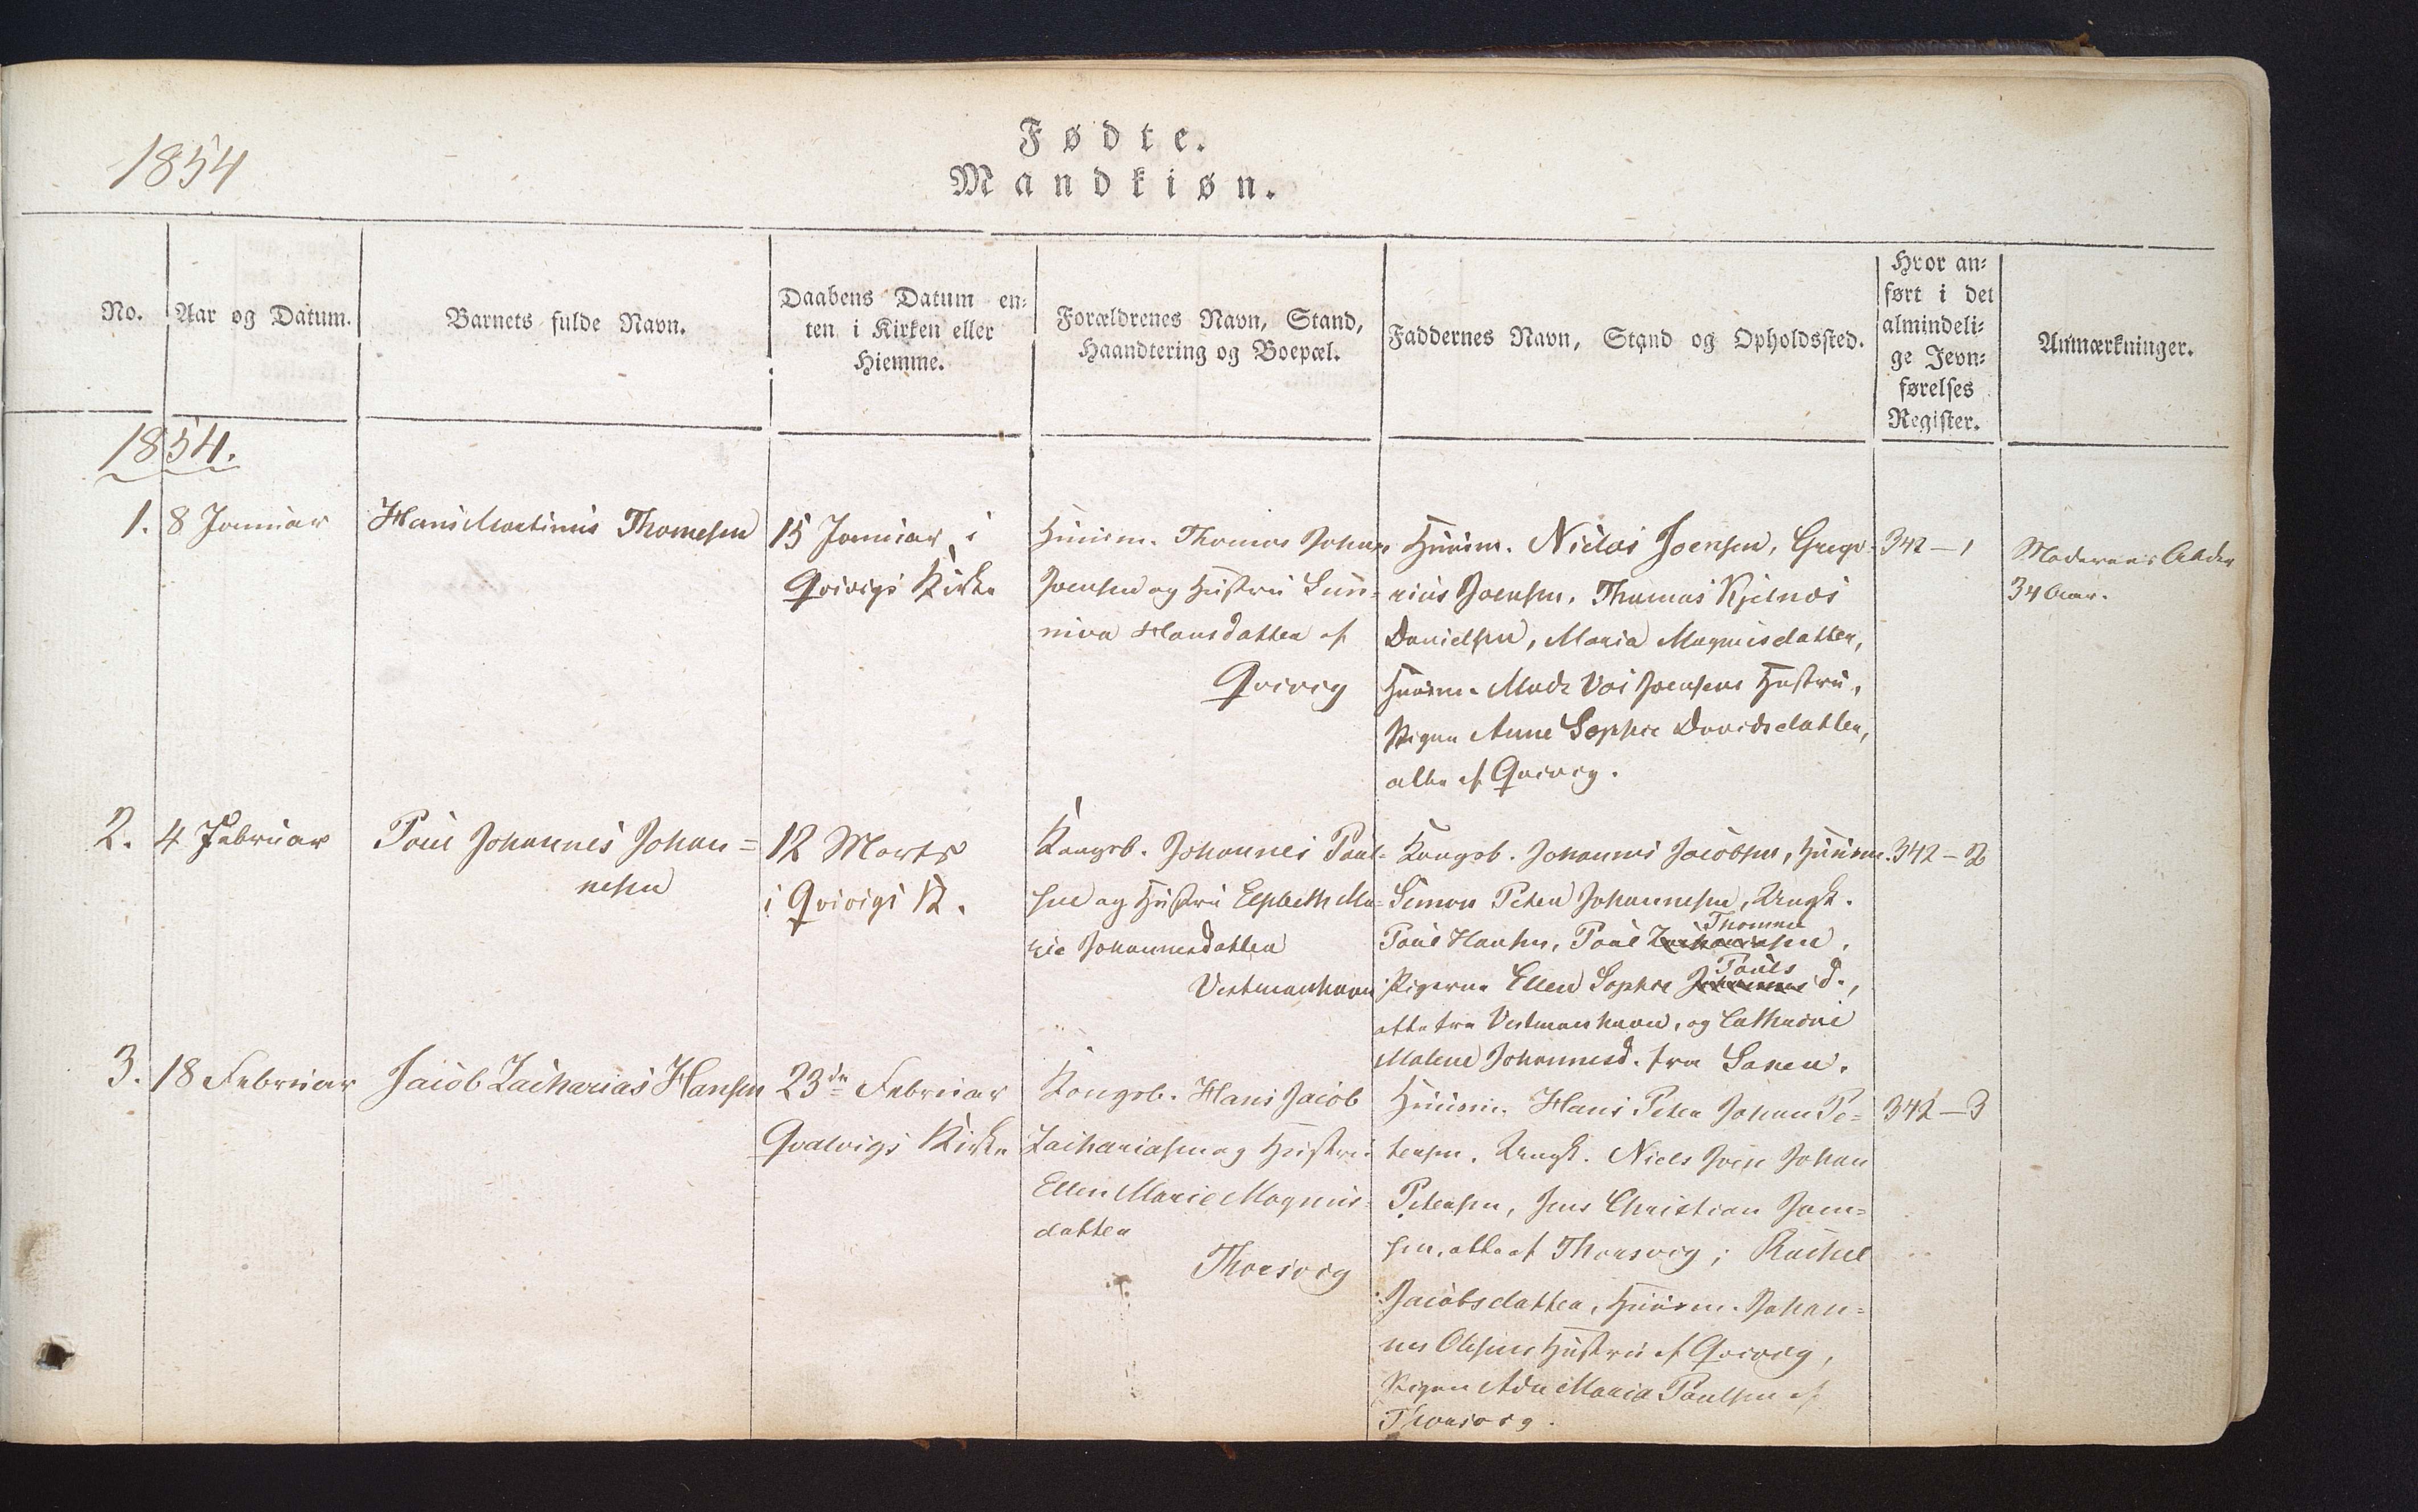 1854
Fødte.
Mandkiøn.
No.
Aar og Datum.
Barnets fulde Navn.
Daabens Datum en-
ten i Kirken eller
Hiemme.
Forældrenes Navn, Stand,
Haandtering og Boepæl.
Faddernes Navn, Stand og Opholdssted.
Hvor an-
ført i det
almindeli-
ge Jevn-
førelses
Register.
Anmærkninger.
1854.
1.
8 Januar
Hans Martinus Thomesen
15 Januar i
Qvivigs Kirke
Huusm. Thomas Johan
Joensen og Hustru Sun-
niva Hansdatter af
Qvivig
Huusm. Niclas Joensen, Grego-
rius Joensen, Thomas Kjelnæs
Danielsen, Maria Magnusdatter,
Huusm. Mads Joensens Hustru,
Pigen Anne Sophie Davidsdatter,
alle af Qvivig.
342-1
Moderens Alder
34 Aar.
2.
4 Februar
Poul Johannes Johan-
nesen
12 Marts
i Qvivigs K.
Kongsb. Johannes Poul-
sen og Hustru Elspeth Ma-
rie Johannesdatter
Vestmanhavn
Kongsb. Johannes Jacobsen, Huusm.
Simon Peter Johannesen, Ungk.
Thomme
Poul Hansen, Poul Zachariasen,
Pouls
Pigerne Ellen Sophie Johannes d.,
alle fra Vestmanhavn, og Cathrine
Malene Johannesd. fra Saxen.
342-2
3.
18 Februar
Jacob Zacharias Hansen
23de Februar
Qvalvigs Kirke
Kongsb. Hans Jacob
Zachariasen og Hustru
Ellen Marie Magnus-
datter
Thorsvig
Huusm. Hans Peter Johan Pe-
tersen, Ungk. Niels Johan
Petersen, Jens Christian Joen-
sen, alle af Thorsvig; Rachel
Jacobsdatter, Huusm. Johan-
nes Olesens Hustru af Qvivig,
Pigen Ada Maria Poulsen af
Thorsvig.
342-3